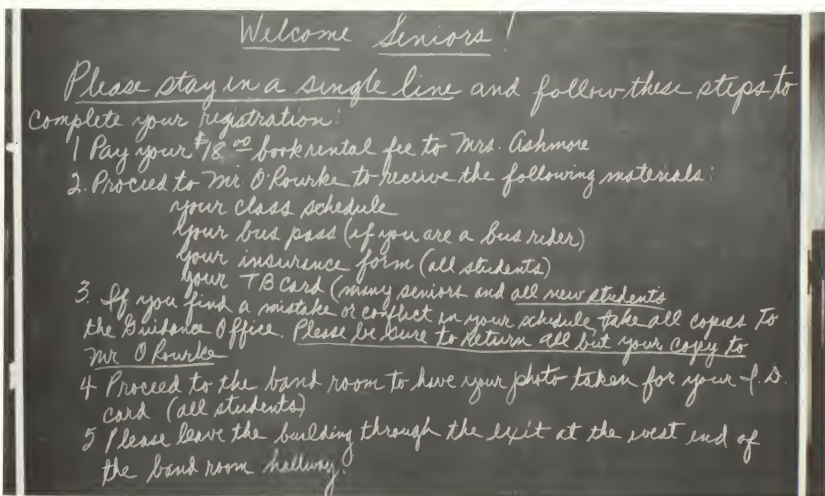 Welcome Seniors!
Please stay in a single line and follow these steps to
complete your registration:
1 Pay your $18.00 book rental fee to Mrs. Ashmore
2. Proceed to Mr O'Rourke to receive the following materials:
your class schedule
your bus pass (if you are a bus rider)
your insurance form (all students)
your TB Card (many seniors and all new students
3. If you find a mistake or conflict in your schedule, take all copies to
the Guidance Office. Please be sure to return all but your copy to
Mr O'Rourke
4 Proceed to the band room to have your photo taken for your I.D.
card (all students)
5 Please leave the building through the exit at the west end of
the band room hallway.